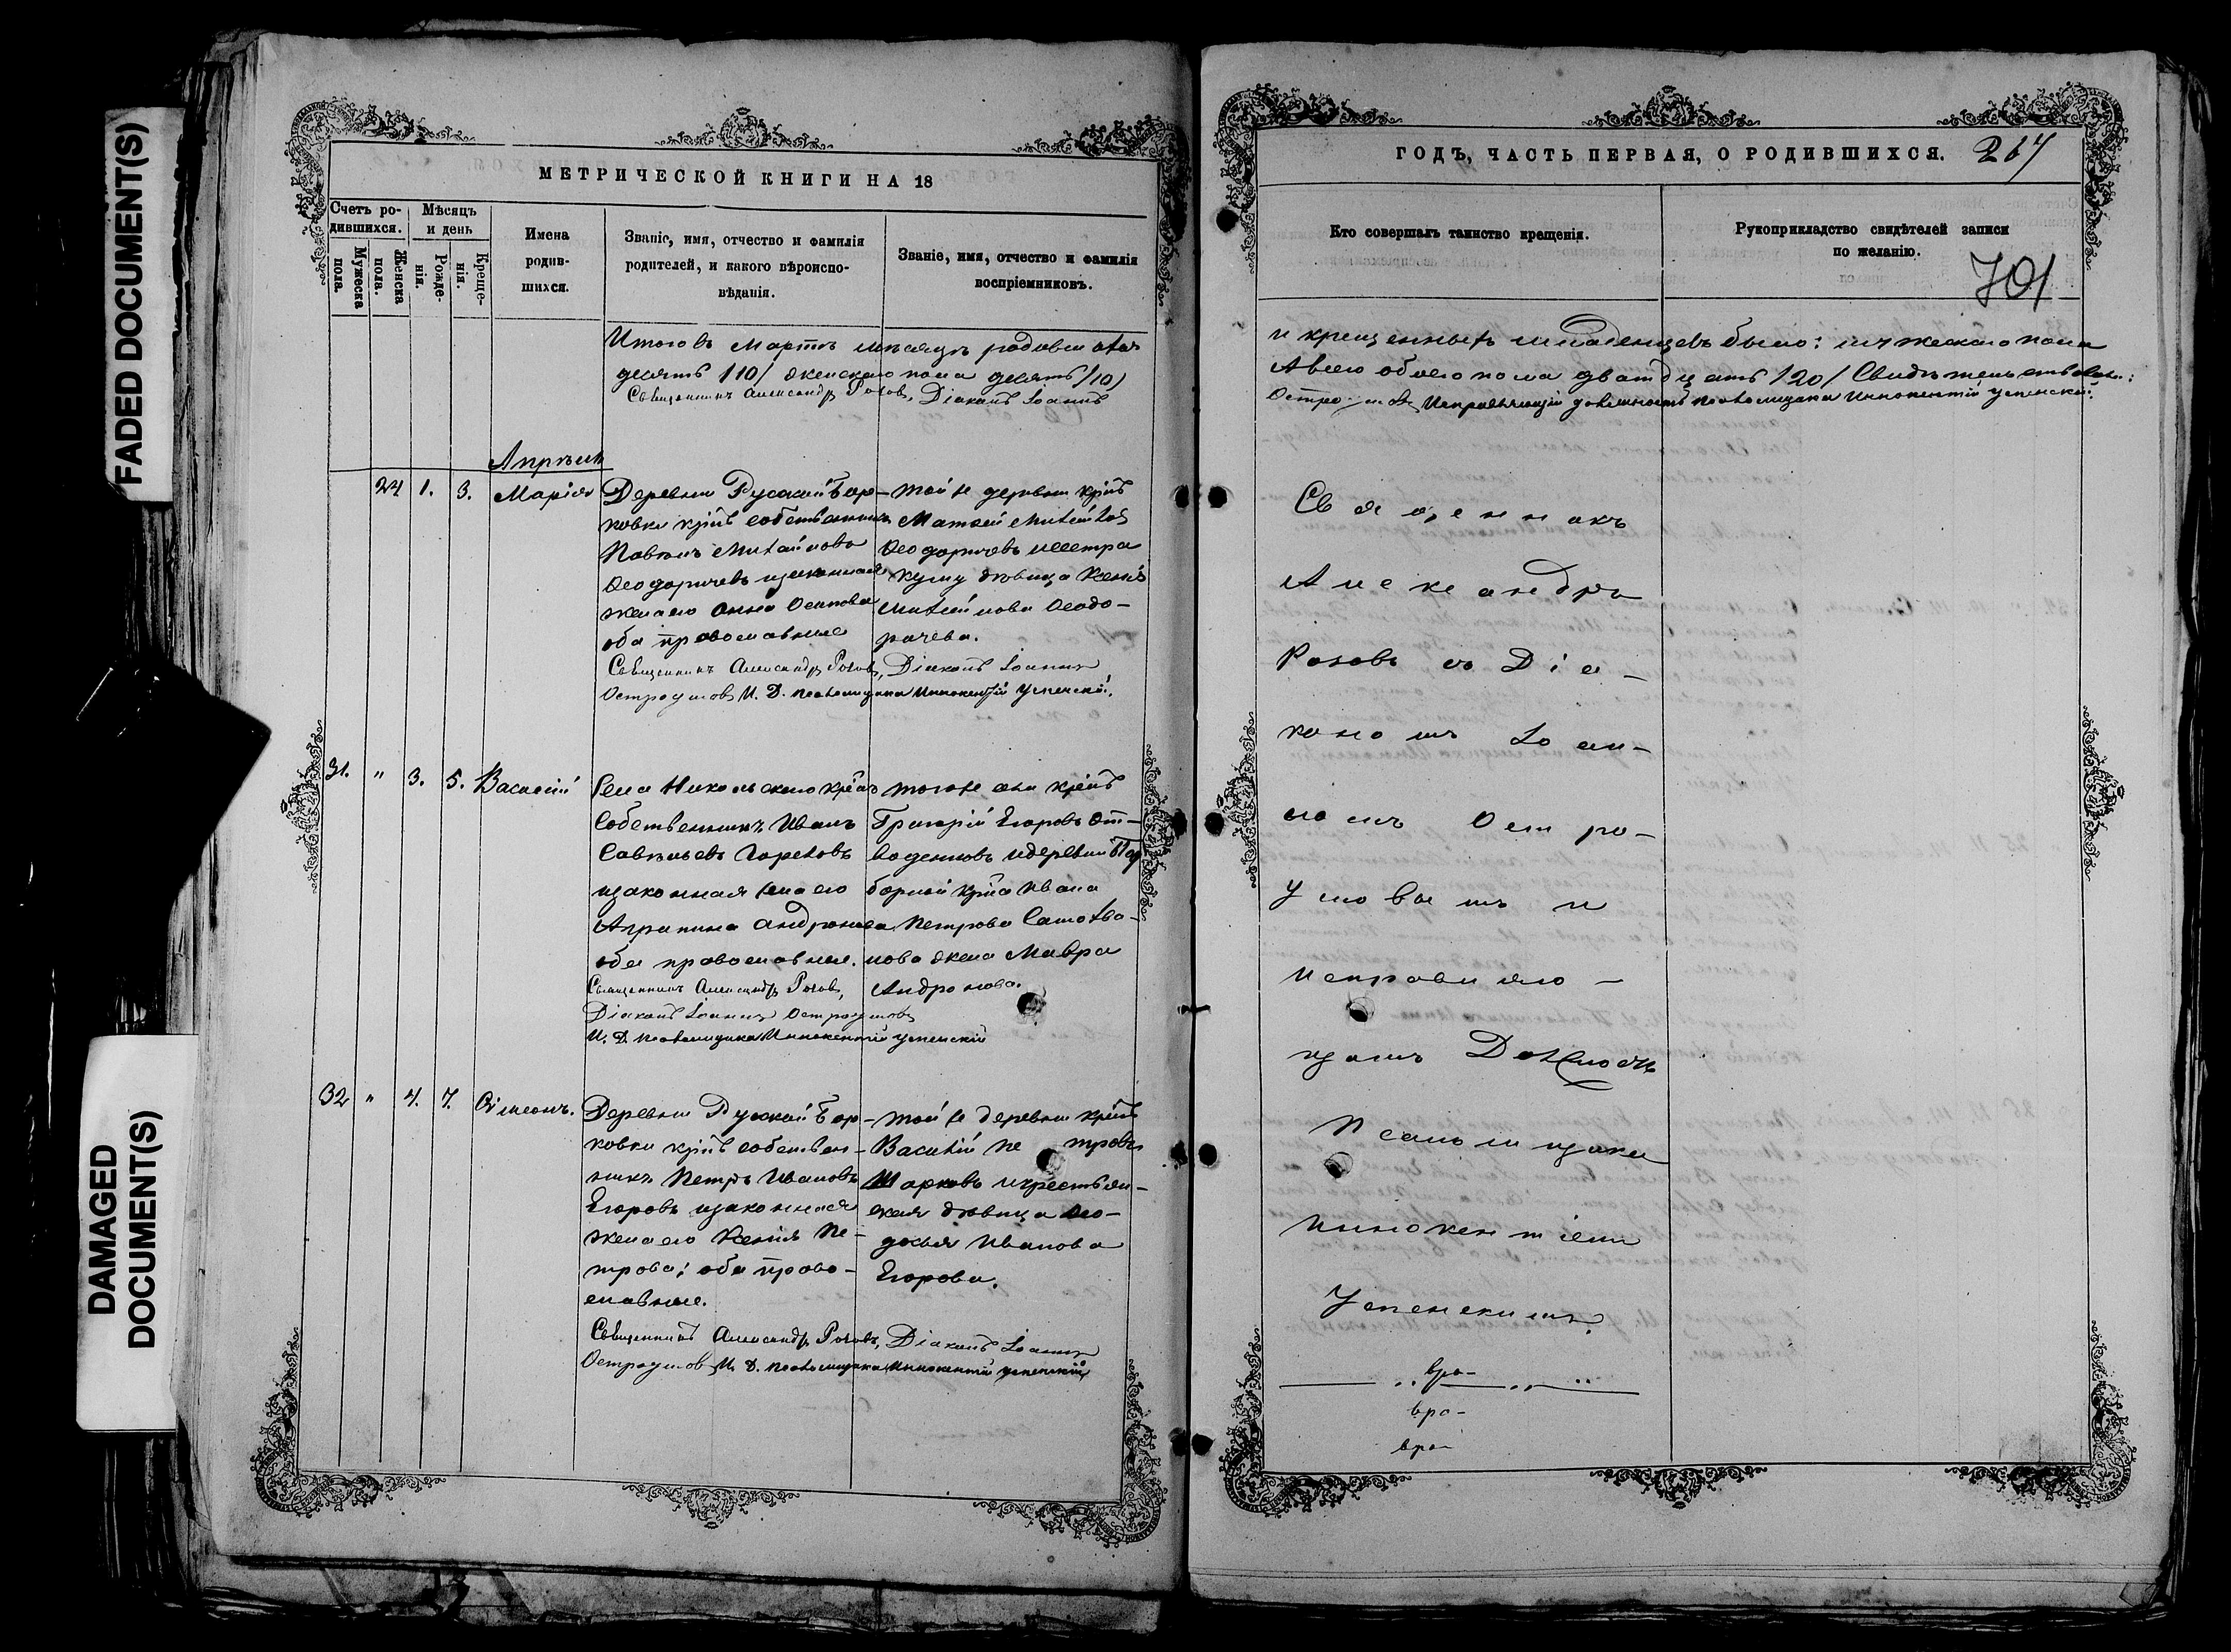 FADED DOCUMENT(S)
DAMAGED
DOCUMENT(S)
МЕТРИЧЕСКОЙ КНИГИ НА 18
Счетъ ро-
дившихся.
Мужеска
пола.
Женска
пола.
Мѣсяцъ
и день
Рожде-
нія.
Креще-
нія.
Имена
родив-
шихся.
Званіе, имя, отчество и фамилія
родителей, и какого вѣроиспо-
вѣданія.
Званіе, имя, отчество и фамилія
воспріемниковъ.
Итого въ Мартѣ мѣсяцѣ родившихся
десять /10/ женскаго пола десять /10/
Священникъ Александръ Роговъ, Діаконъ Іоаннъ
Апрѣль
24 1. 3. Марія
Деревни Русской Бор-
ковки крѣнъ собственникъ
Павелъ Михайловъ
Ѳеодоричевъ изаконная
жена его Анна Осипова
оба православные
Той же деревни крѣнъ
Матвей Михайловъ
Ѳеодоричевъ
дѣвица Ксенія
Михайлова Ѳеодо-
ричева.
Священникъ Александръ Роговъ, Діаконъ Іоаннъ
Остроумовъ И. Д. Псаломщика Иннокентій Успенскій.
31. " 3. 5. Василій
Села Никольскаго крѣнъ
Собственникъ Иванъ
Савельевъ Гореловъ
изаконная жена его
Аграпина Андронова
оба православные.
тогоже села крѣнъ
Григорій Егоровъ От-
воденковъ идеревни Под
борной крѣна Ивана
Петрова Самохва-
лова жена Мавра
Андронова.
Священникъ Александръ Роговъ,
Діаконъ Іоаннъ Остроумовъ
И. Д. Псаломщика Иннокентій Успенскій
32 " 4. 7. Сімеонъ.
Деревни Русской Бор-
ковки крѣнъ собствен-
никъ Петръ Ивановъ
Егоровъ изаконная
жена его Ксенія Пе-
трова; оба право-
славные.
той же деревни крѣнъ
Василій Петровъ
Марковъ икрестьян-
ская дѣвица Ѳео-
досья Иванова
Егорова.
Священникъ Александръ Роговъ, Діаконъ Іоаннъ
Остроумовъ И. Д. Псаломщика Иннокентій Успенскій
ГОДЪ, ЧАСТЬ ПЕРВАЯ, О РОДИВШИХСЯ.
267
Кто совершалъ таинство крещенія.
Рукоприкладство свидѣтелей записи
по желанію.
701
и крещенныхъ младенцевъ было: мужескаго пола
Авсего обоего пола двадцать /20/
Остроумовъ Исправляющій должность псаломщика Иннокентій Успенскій.
Священникъ
Александръ
Роговъ съ Діа-
кономъ Іоан-
номъ Остро-
умовымъ и
исправляю-
щимъ Должность
Псаломщика
Иннокентіемъ
Успенскимъ.